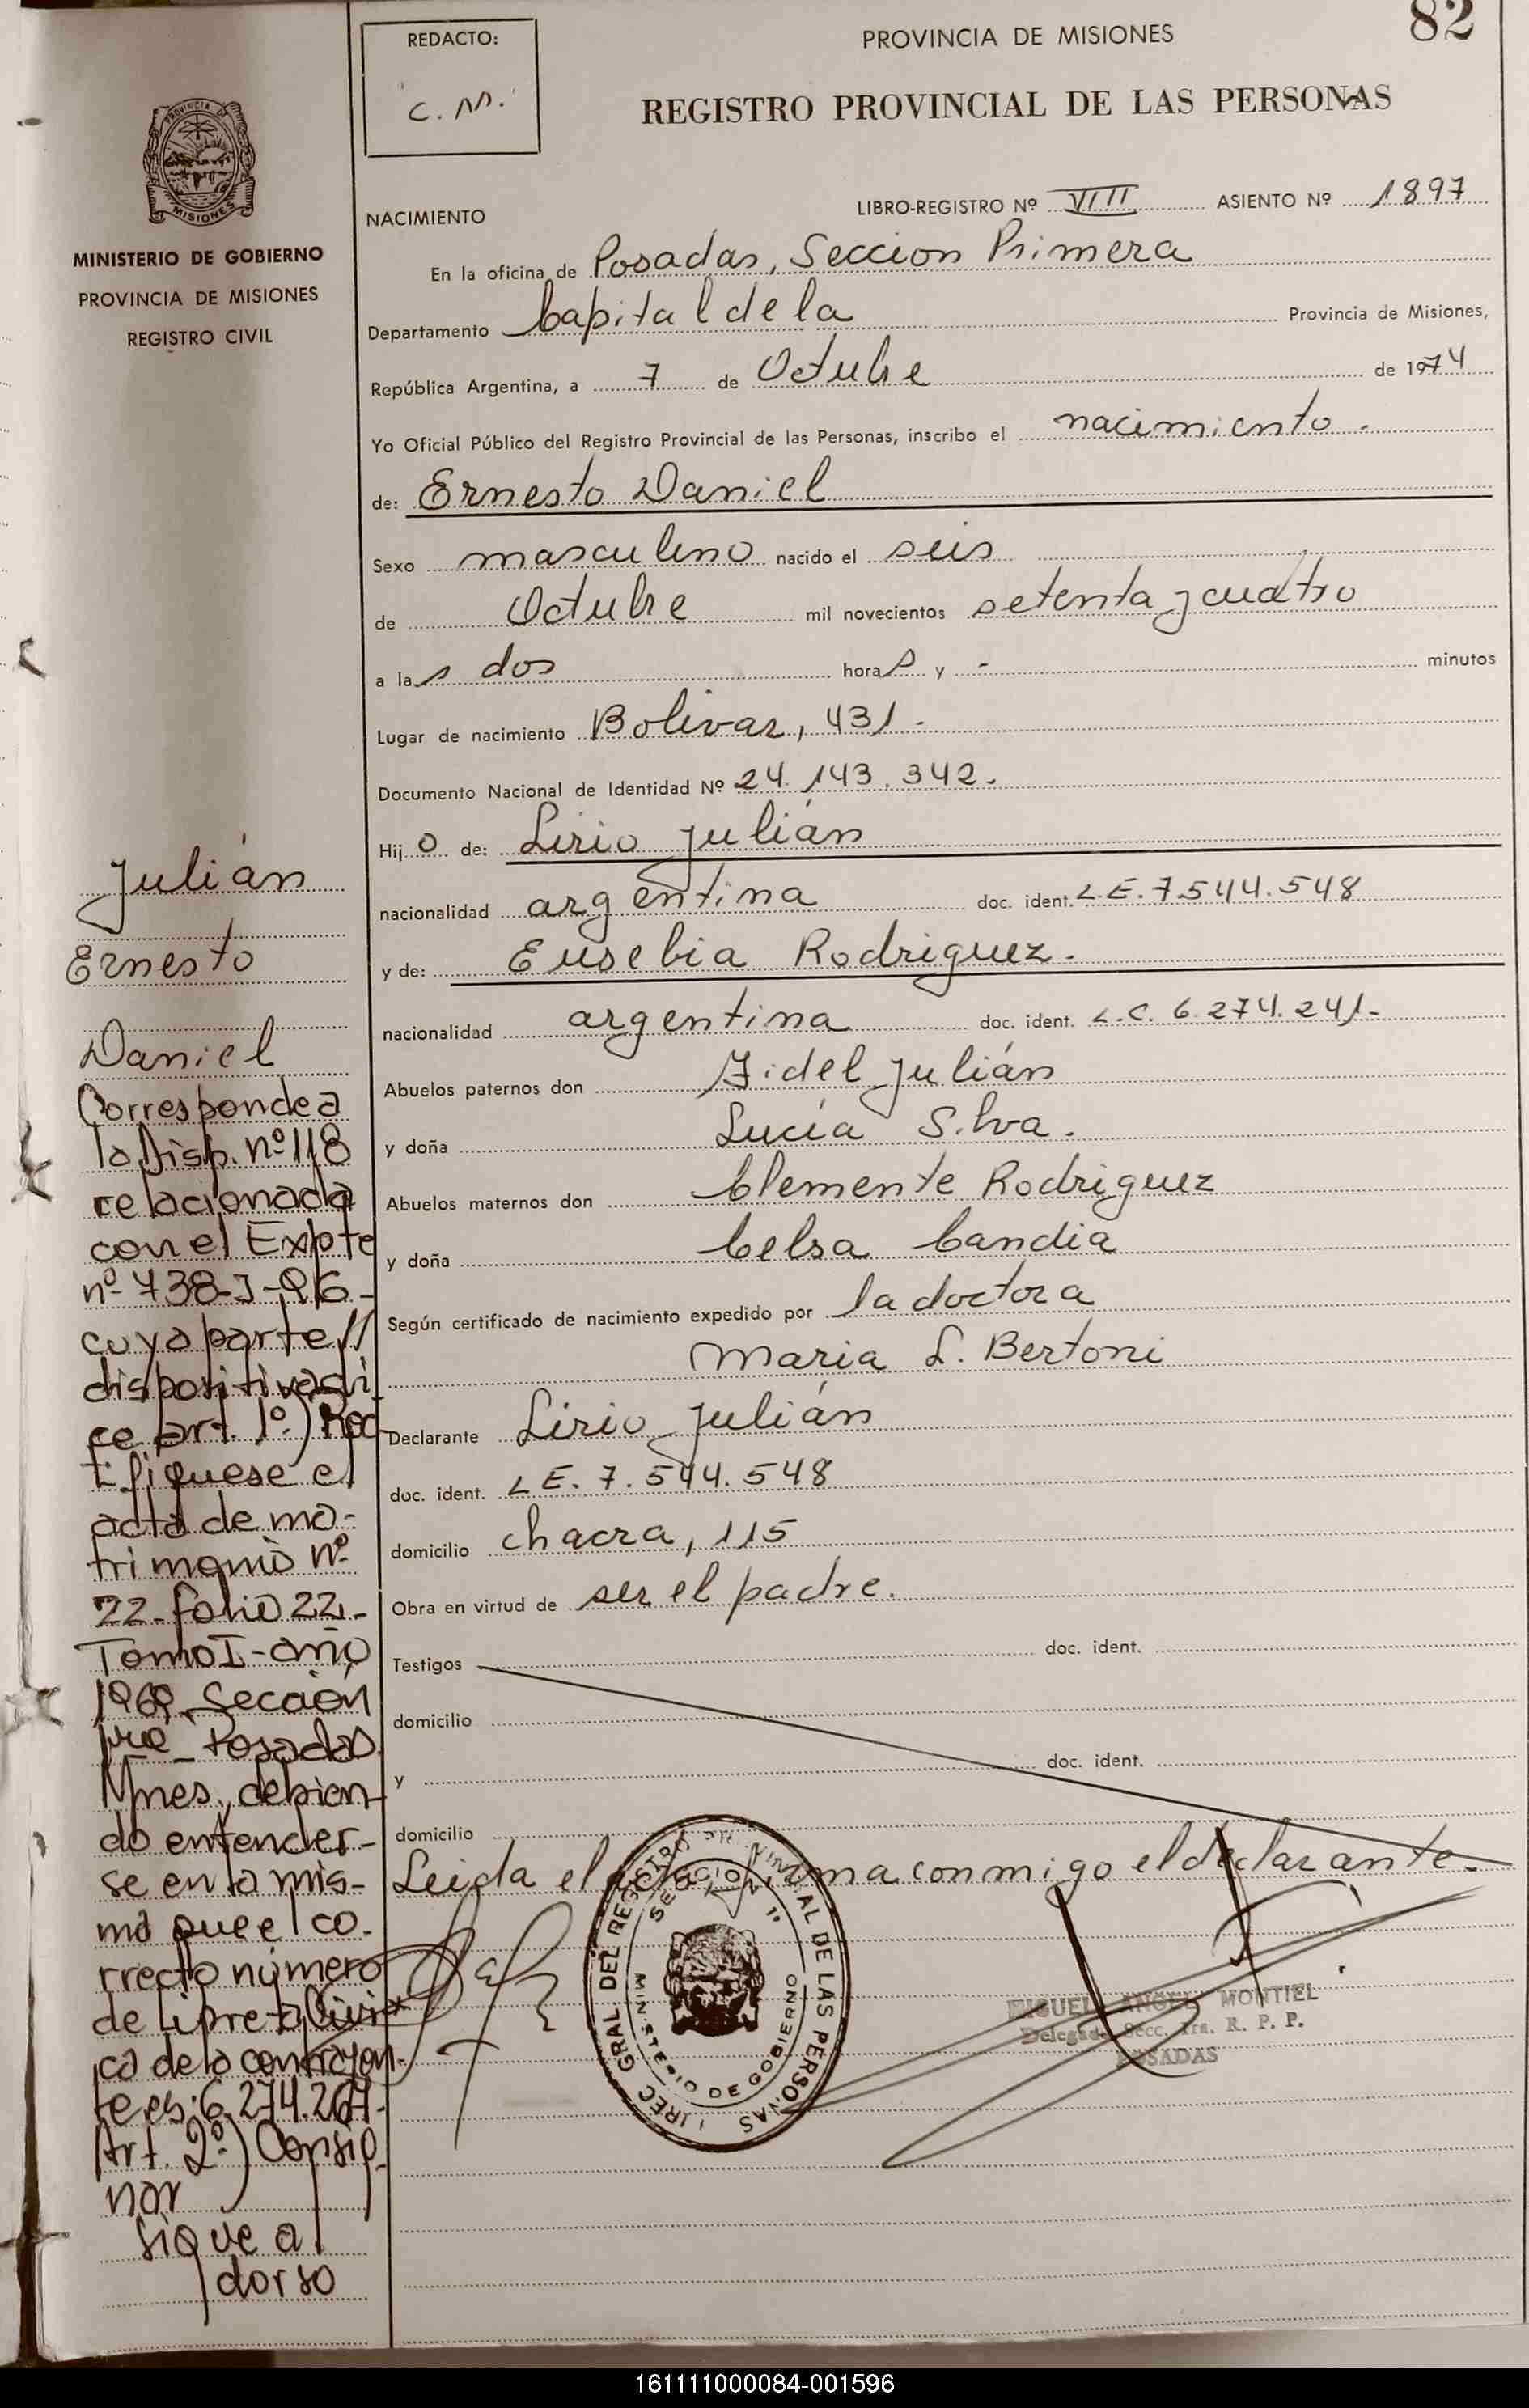 82
REDACTO:
C. M.
PROVINCIA DE MISIONES
REGISTRO PROVINCIAL DE LAS PERSONAS
PROVINCIA DE
MISIONES
MINISTERIO DE GOBIERNO
PROVINCIA DE MISIONES
REGISTRO CIVIL
NACIMIENTO
LIBRO-REGISTRO Nº VIII ASIENTO Nº 1897
En la oficina de Posadas, Seccion Primera
Departamento Capital de la Provincia de Misiones,
República Argentina, a 7 de Octubre de 1974
Yo Oficial Público del Registro Provincial de las Personas, inscribo el nacimiento.
de: Ernesto Daniel
Sexo masculino nacido el seis
de Octubre mil novecientos setenta y cuatro
a las dos horas y - minutos
Lugar de nacimiento Bolivar, 431.
Documento Nacional de Identidad Nº 24.143.342.
Hijo de: Lirio Julián
nacionalidad argentina doc. ident. L.E. 7.544.548
y de: Eusebia Rodriguez.
nacionalidad argentina doc. ident. L.C. 6.274.241.
Abuelos paternos don Fidel Julián
y doña Lucía Silva.
Abuelos maternos don Clemente Rodriguez
y doña Celsa Candia
Según certificado de nacimiento expedido por la doctora
Maria L. Bertoni
Declarante Lirio Julián
doc. ident. L E. 7.544.548
domicilio chacra, 115
Obra en virtud de ser el padre.
Testigos doc. ident.
domicilio
y doc. ident.
domicilio
Leida el acta firma conmigo el declarante.
DIREC GRAL DEL REGISTRO PROVINCIAL DE LAS PERSONAS
SECCION 1ª
MINISTERIO DE GOBIERNO
MIGUEL ANGEL MONTIEL
Delegado Secc. 1ra. R. P. P.
POSADAS
Julián
Ernesto
Daniel
Corresponde a
la Disp. nº 118
relacionada
con el Expte
nº 738-J-96-
cuya parte//
dispositiva di
ce art. 1º.) Rec
tifíquese el
acta de ma-
trimonio nº
22-folio 22-
Tomo I-año
1969 Sección
1ra_ Posadas
Mnes, debien-
do entender-
se en la mis-
ma que el co-
rrecto número
de Libreta Cívi
ca de la contrayen-
te es: 6.274.264-
Art. 2º.) Consig-
nar
sigue al
dorso
161111000084-001596